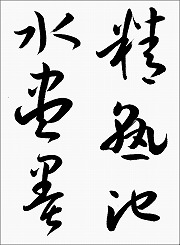 精熟池
水盡墨